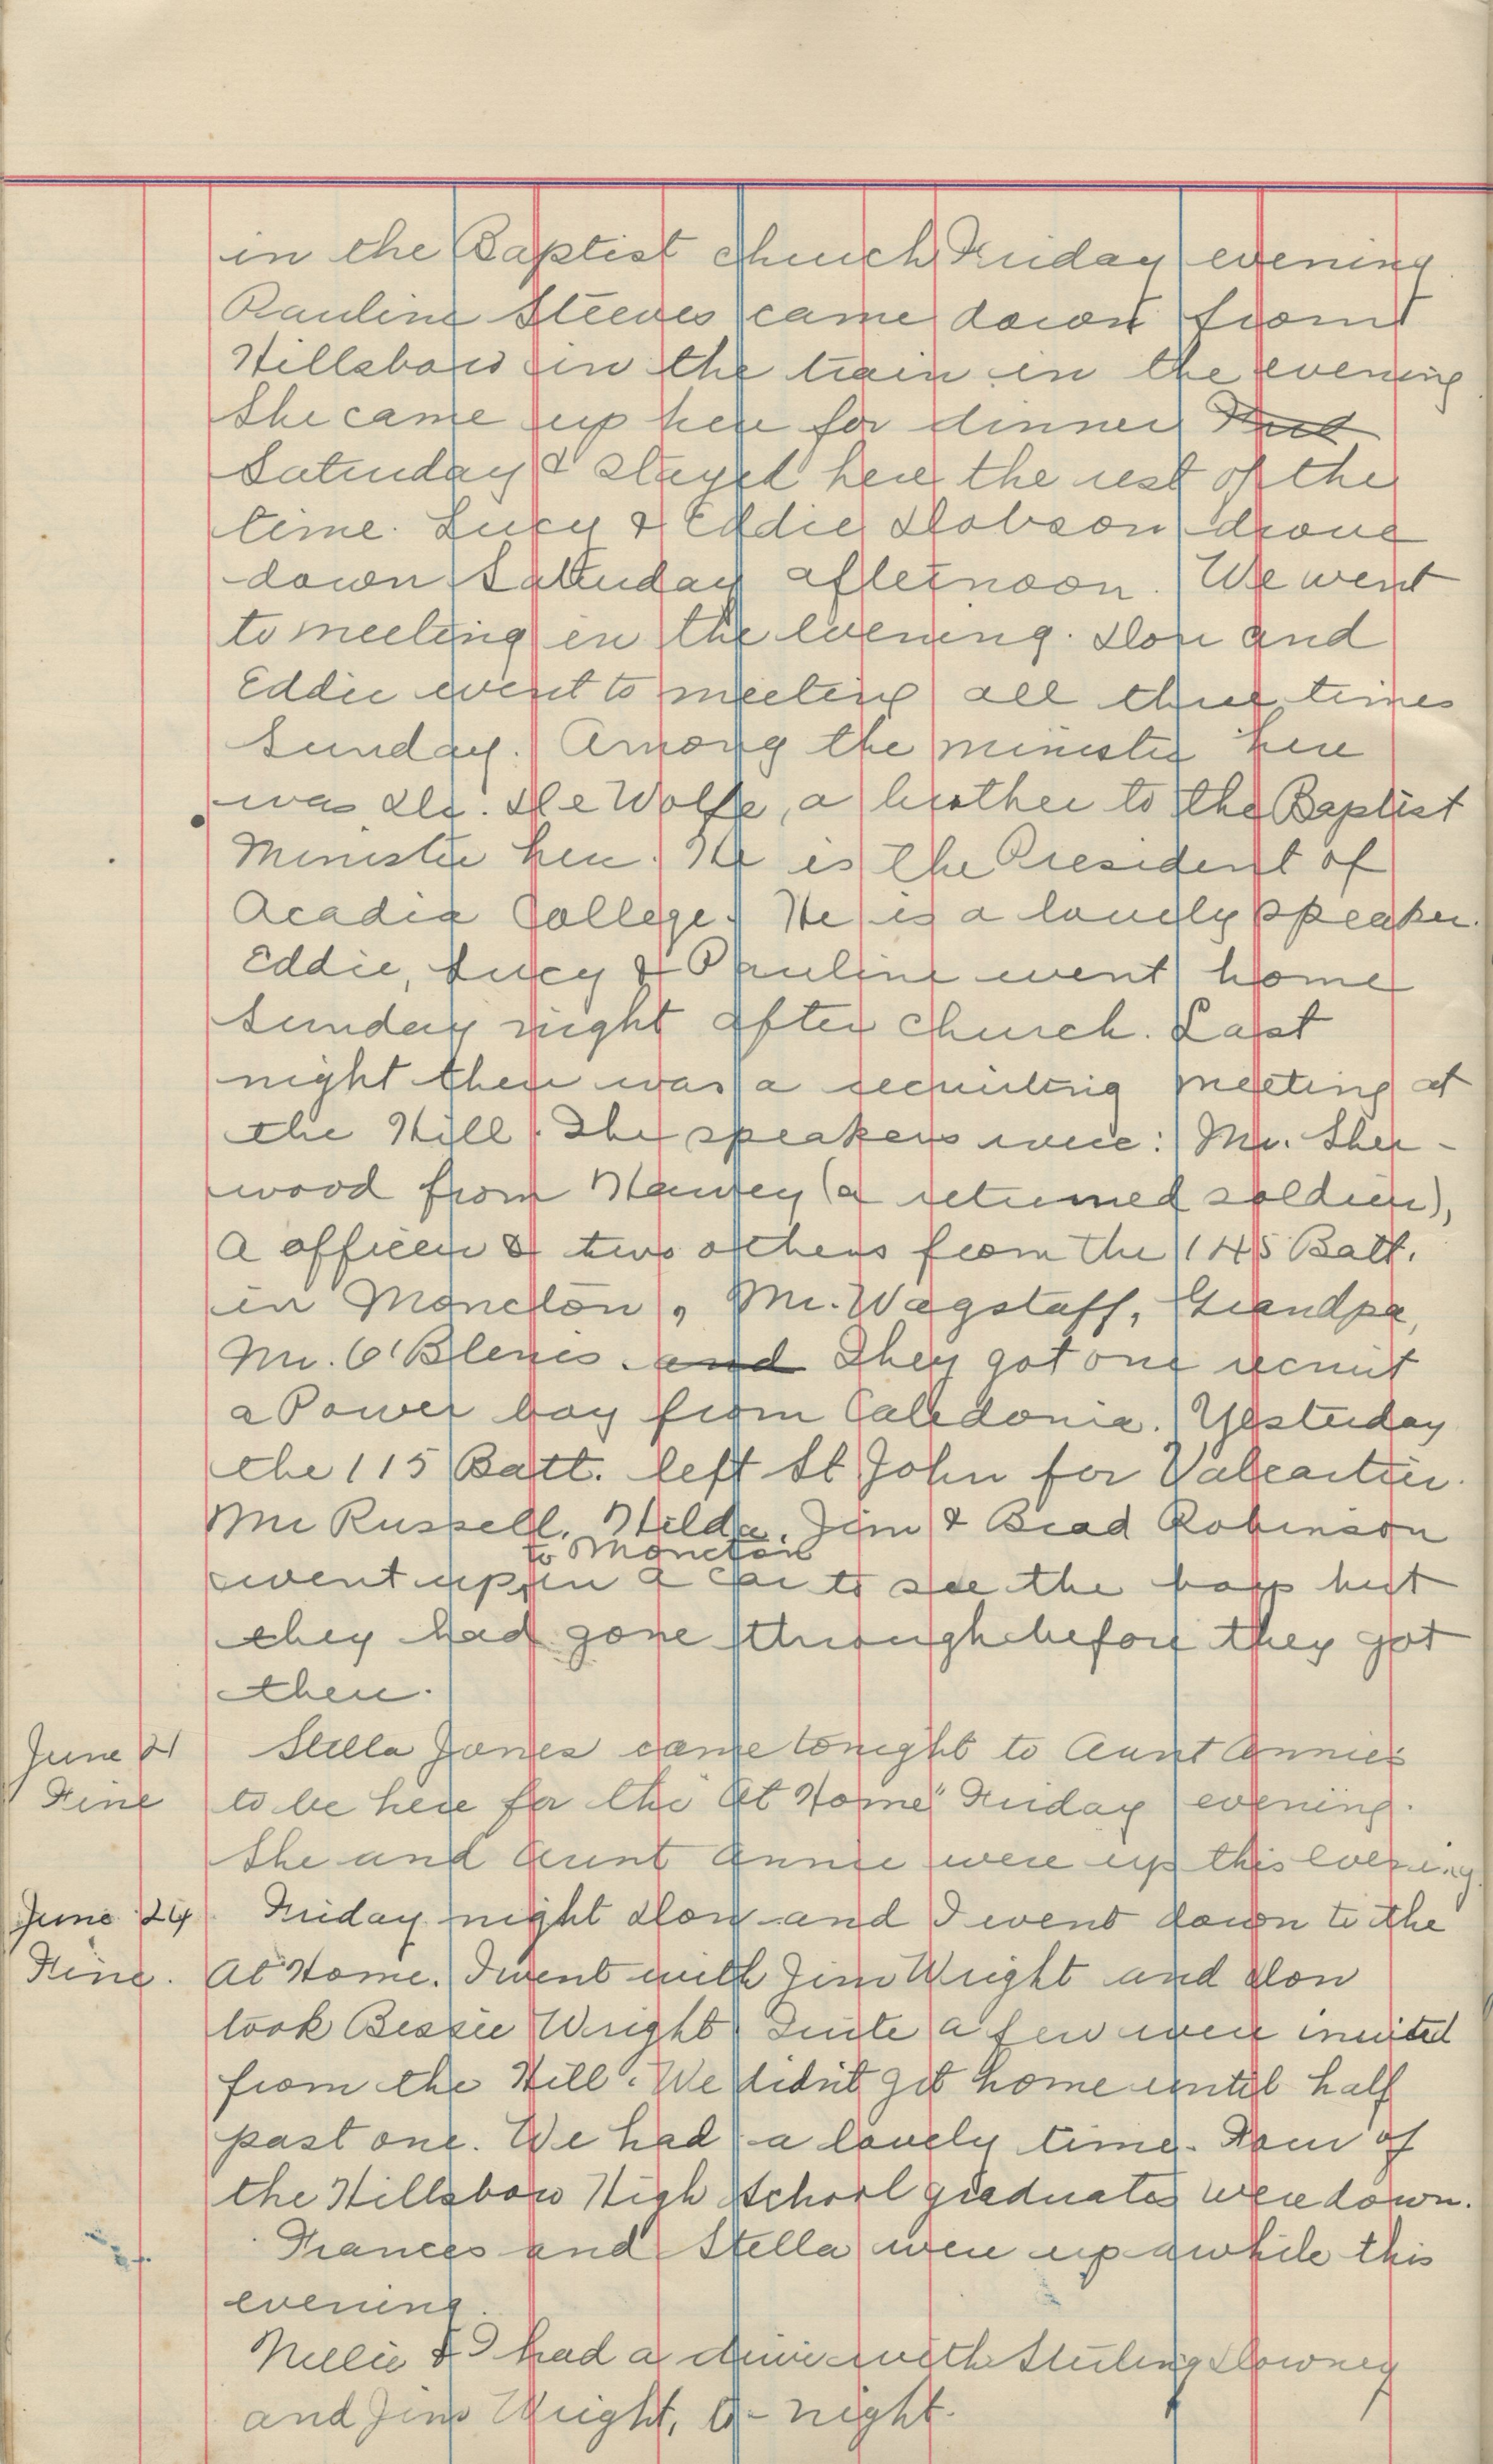 in the Baptist church Friday evening.
Pauline Steeves came down from
Hillsboro in the train in the evening
She came up here for dinner
Saturday & stayed here the rest of the
time. Lucy & Eddie Dobson drove
down Satturday afternoon. We went
to meeting in the evening. Don and
Eddie went to meeting all three times
Sunday. Among the minister here
was Dr. De Wolfe, a brother to the Baptist
Minister here. He is the President of
Acadia College. He is a lovely speaker.
Eddie, Lucy & Pauline went home
Sunday night after church. Last
night there was a recruiting meeting at
the Hill. The speakers were: Mr. Sher-
wood from Harvey (a returned soldier),
a officer & two others from the 145 Batt.
in Moncton, Mr. Wagstaff, Grandpa,
Mr. O'Blenis. and They got one recruit
a Power boy from Caledonia. Yesterday
the 115 Batt. left St John for Valcartier.
Mr Russell, Hilda, Jim & Brad Robinson
to Moncton
went up in a car to see the boys but
they had gone through before they got
there.
June 21 Stella Jones came tonight to Aunt Annies
Fine to be here for the "At Home" Friday evening.
She and Aunt Annie were up this evening.
June 24 Friday night Don and I went down to the
Fine. At Home. I went with Jim Wright and Don
took Bessie Wright. Quite a few were invited
from the Hill. We didn't get home until half
past one. We had a lovely time. Four of
the Hillsboro High School graduates were down.
Frances and Stella were up awhile this
evening.
Nellie & I had a drive with Sterling Downey
and Jim Wright, to-night.